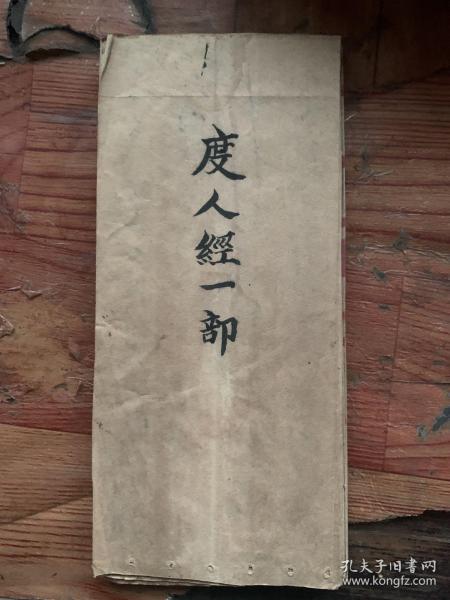 度人經一部
孔夫子旧书网
www.kongfz.com